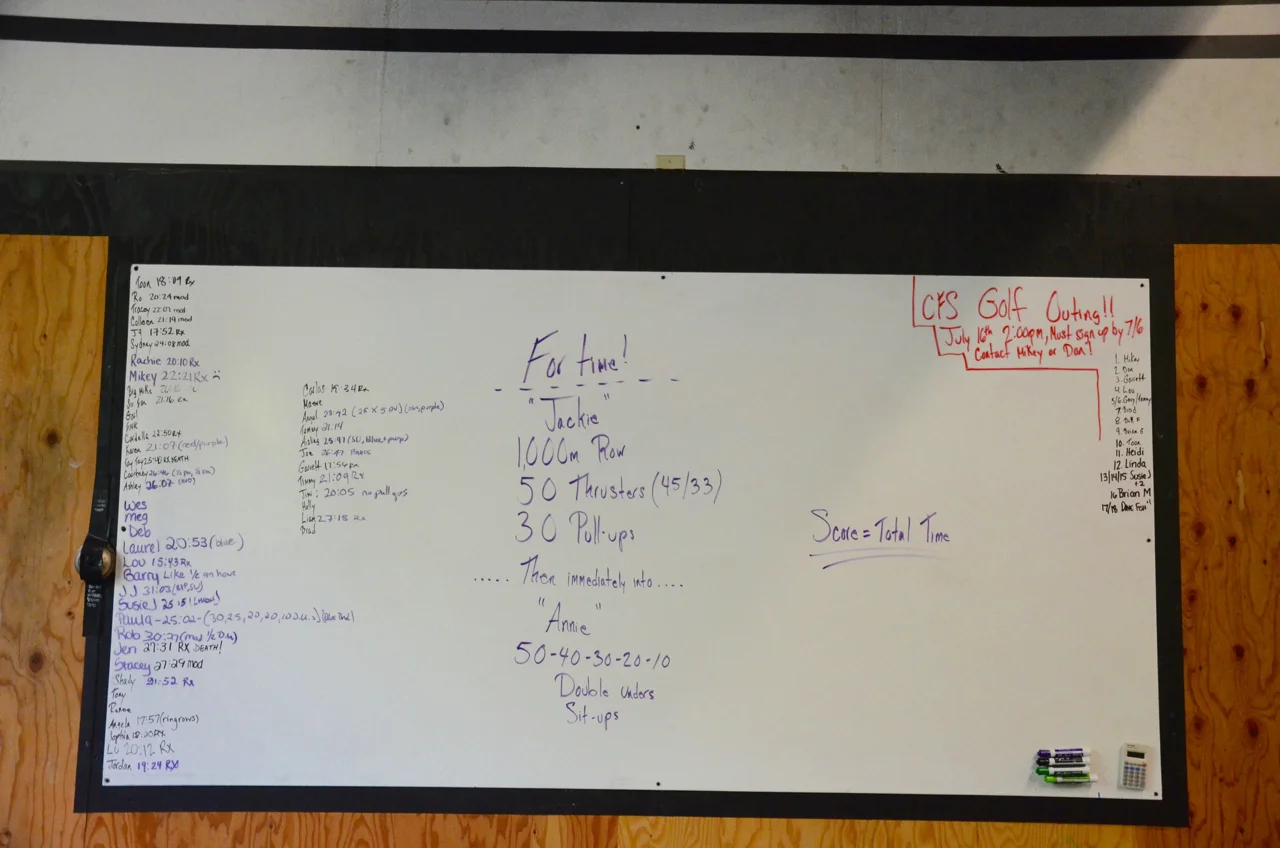 Toon 18:09 Rx
Ro 20:24 mod
Tracey 22:02 mod
Colleen 21:19 mod
17:52 Rx
Sydney 24:08 mod
Rachie 20:10 Rx
Mikey 22:21 Rx
Big Mike
21:16 Rx
Gail
Cordelle 22:50 Rx
Karen 21:07 (red/purple)
Tay Tay 25:40 RX DEATH
Courtney
Ashley 26:07
Wes
Meg
Deb
Laurel 20:53 (blue)
Lou 15:43 Rx
Barry Like 1/2 an hour
JJ 31:03
Susie J
Paula - 25:02 - (30, 25, 20, 20, 10 D.U.s)
Rob 30:27 (mod 1/2 D.U.)
Jen 27:31 RX DEATH!
Stacey 27:29 mod
Shady 21:52 Rx
Tony
Angela 17:57 (ringrows)
18:20 RX
Lu 20:12 RX
Jordan 19:24 RX
Carlos 15:34 Rx
Angel
21:14
Jon
Garrett 17:54 Rx
Timmy 21:09 RX
Tim: 20:05 no pull ups
Holly
Liam 27:18 Rx
Brad
For time!
"Jackie"
1,000m Row
50 Thrusters (45/33)
30 Pull-ups
..... Then immediately into ....
"Annie"
50-40-30-20-10
Double unders
Sit-ups
Score = Total Time
CFS Golf Outing!!
July 16th 2:00pm, Must sign up by 7/6
Contact Mikey or Dan!
1. Mike
2. Dan
3. Garrett
4. Lou
5/6.
7. Brad
8. Jeff F
9. Brian G
10. Toon
11. Heidi
12. Linda
13/14/15 Susie J
+2
16 Brian M
17/18